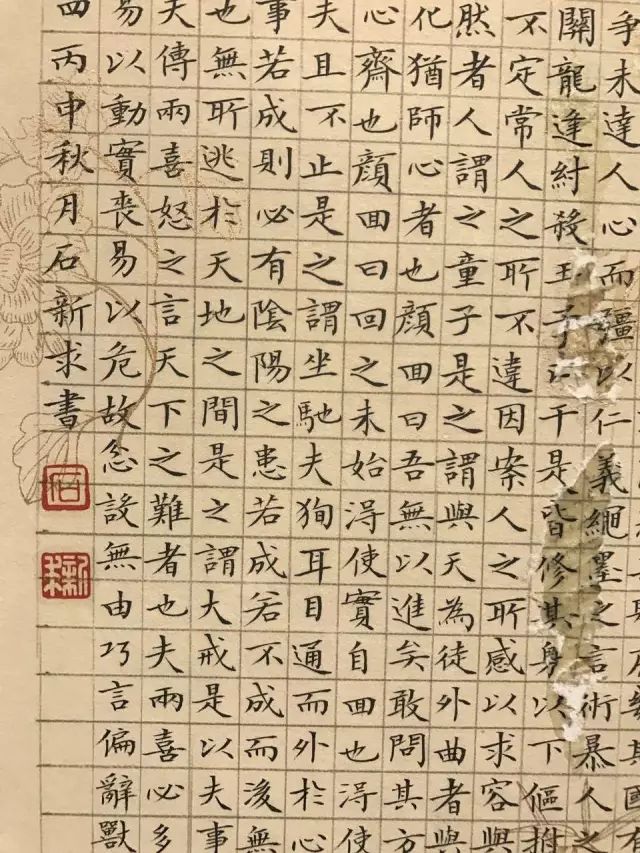 争未達人心而彊以仁義繩墨之言術暴人之
關龍逢紂殺王子比干是皆修其身以下傴拊
不定常人之所不違因案人之所感以求容與
然者人謂之童子是之謂與天為徒外曲者與
化猶師心者也顔回曰吾無以進矣敢問其方
心齋也顔回曰回之未始淂使實自回也淂使
夫且不止是之謂坐馳夫狥耳目通而外於心
事若成則必有陰陽之患若成若不成而後無
也無所逃於天地之間是之謂大戒是以夫事
天傳兩喜怒之言天下之難者也夫兩喜必多
易以動實喪易以危故忿設無由巧言偏辭獸
四丙申秋月石新求書
石
新求